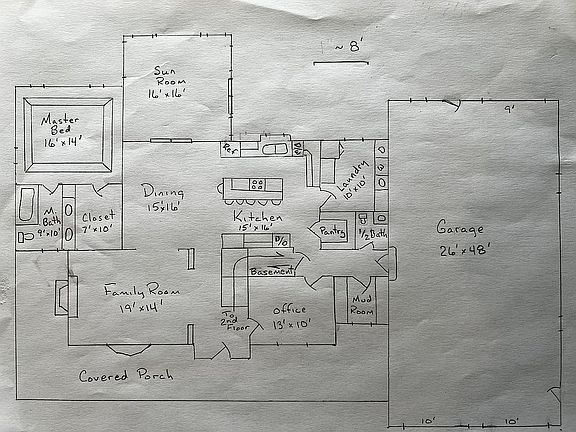 ~ 8'
Sun
Room
16' x 16'
Master
Bed
16' x 14'
9'
Ref
Laundry
10' x 10'
Dining
15' x 16'
Kitchen
15' x 16'
M.
Bath
9' x 10'
Closet
7' x 10'
Pantry
1/2 Bath
Garage
26' x 48'
D/O
Basement
Family Room
19' x 14'
To
2nd
Floor
Office
13' x 10'
Mud
Room
Covered Porch
10'
10'